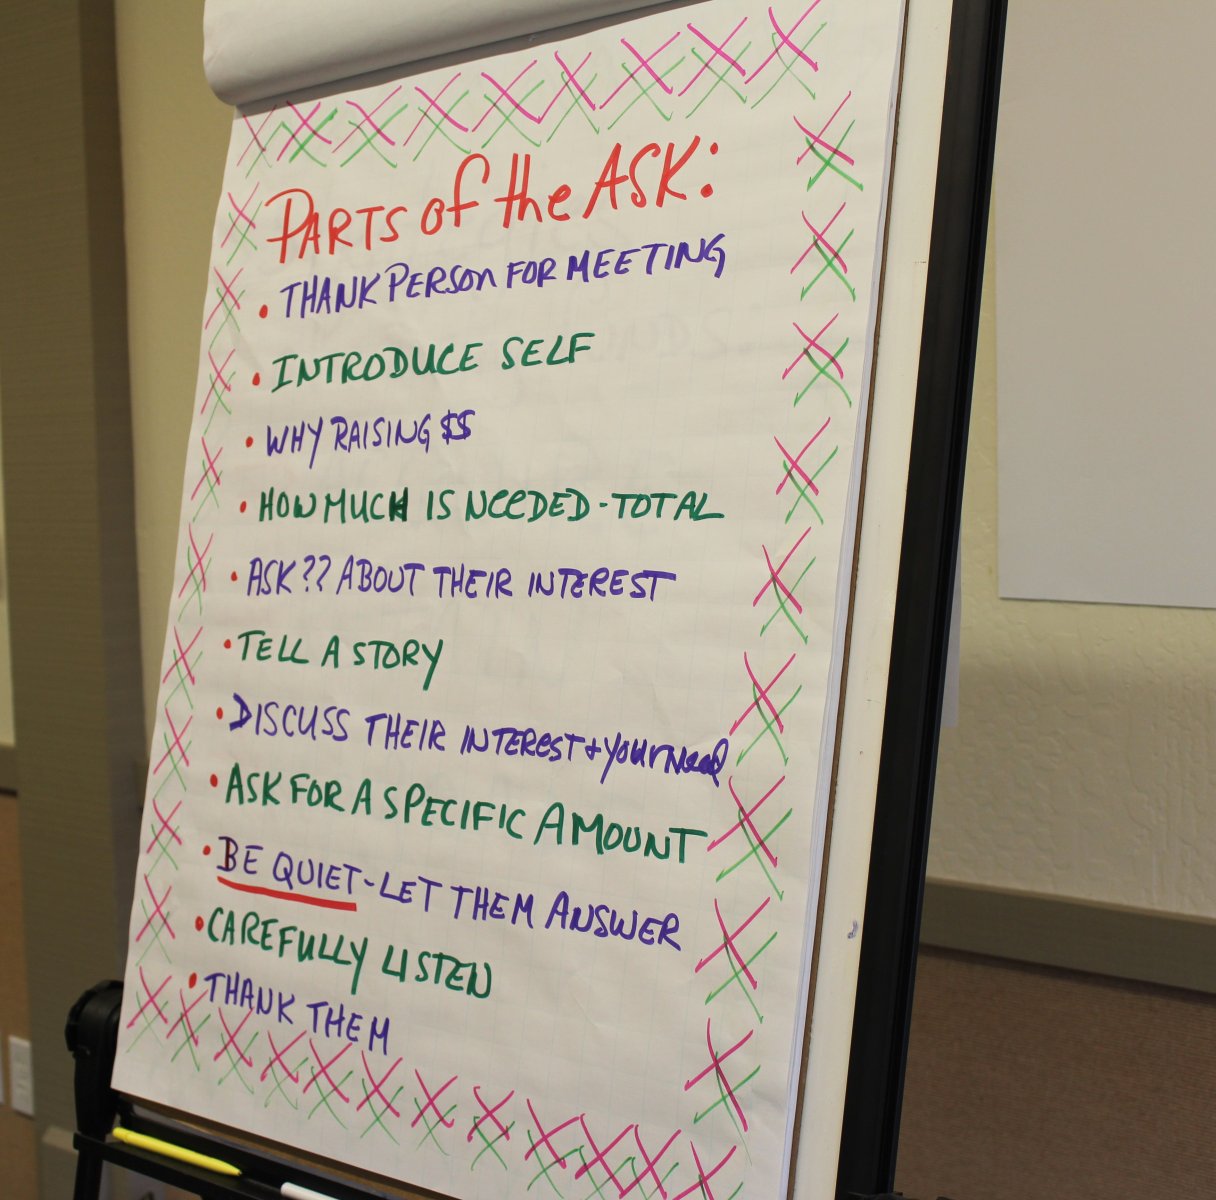 PARTS of the ASK:
• THANK PERSON FOR MEETING
• INTRODUCE SELF
• WHY RAISING $$
• HOW MUCH IS NEEDED - TOTAL
• ASK ?? ABOUT THEIR INTEREST
• TELL A STORY
• DISCUSS THEIR INTEREST + YOUR NEED
• ASK FOR A SPECIFIC AMOUNT
• BE QUIET - LET THEM ANSWER
• CAREFULLY LISTEN
• THANK THEM